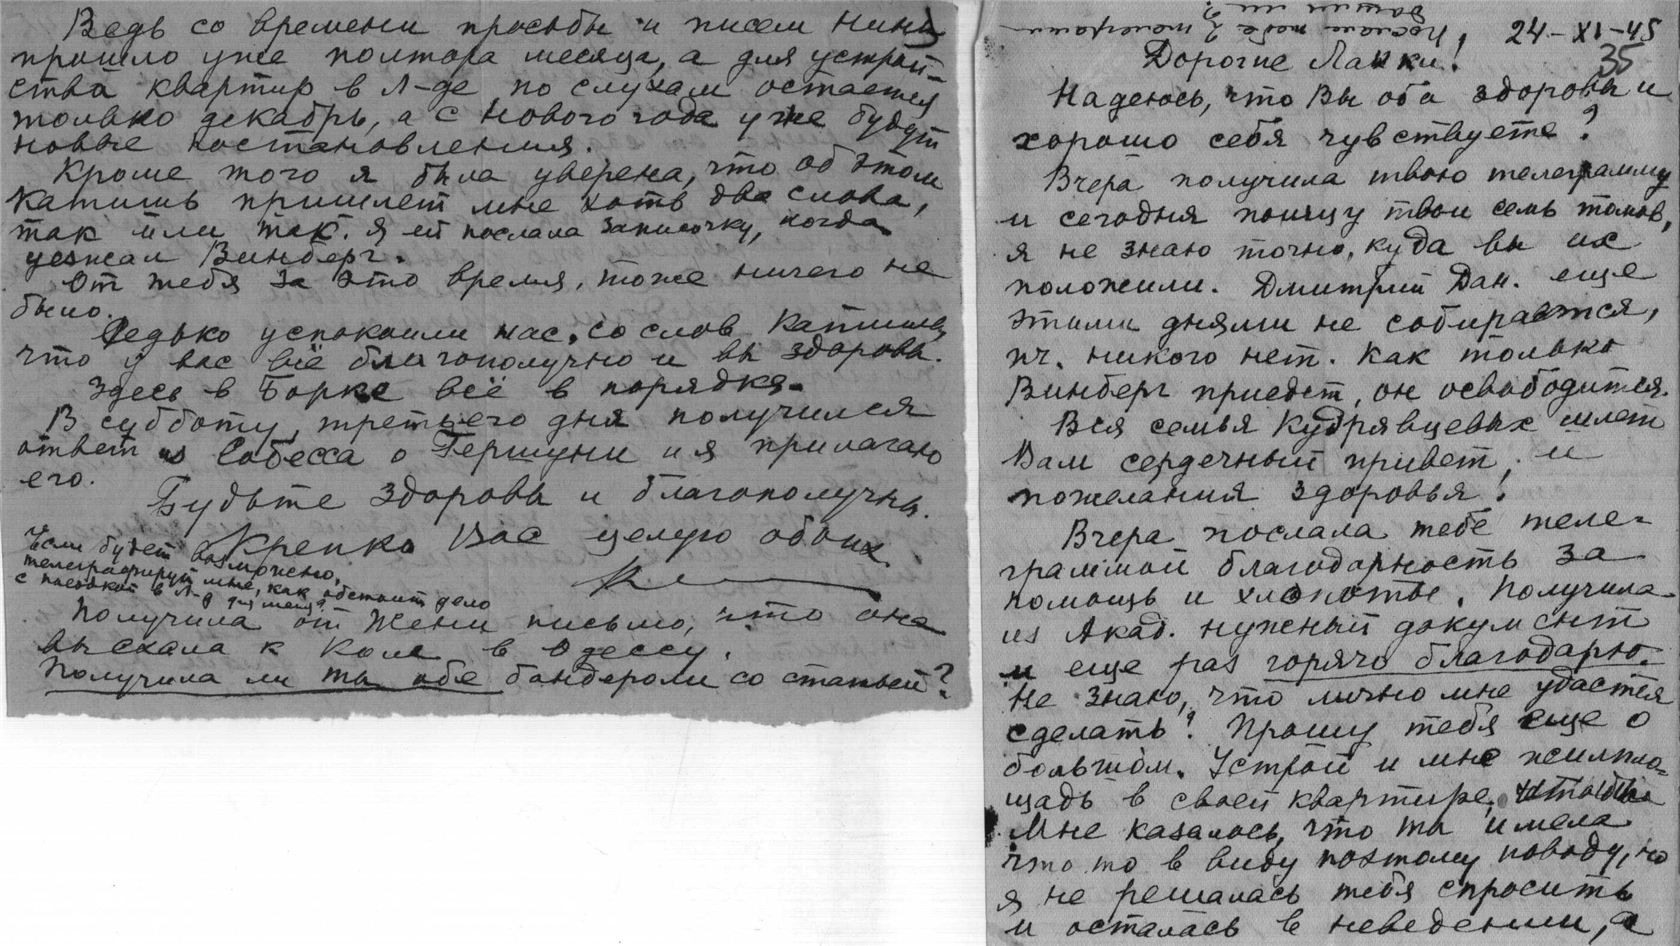 24-XI-45
35
Дорогие Лапки!
Надеюсь, что Вы оба здоровы и
хорошо себя чувствуете?
Вчера получила твою телеграмму
и сегодня поищу твои семь томов,
я не знаю точно, куда вы их
положили. Дмитрий Дан. еще
этими днями не собирается,
пч. никого нет. Как только
Винберг приедет, он освободится.
Вся семья Кудрявцевых шлет
Вам сердечный привет, и
пожелания здоровья!
Вчера послала тебе теле-
граммой благодарность за
помощь и хлопоты. Получила
из Акад. нужный документ
и еще раз горячо благодарю.
Не знаю, что лично мне удастся
сделать? Прошу тебя еще о
большом. Устрой и мне жилпло-
щадь в своей квартире,
Мне казалось, что ты имела
что то в виду поэтому поводу, но
я не решалась тебя спросить
и осталась в неведении, а
Послали тебе 2 телеграммы
Ведь со времени просьбы и писем Нины
прошло уже полтора месяца, а для устрой-
ства квартир в Л-де по слухам остается
только декабрь, а с Нового года уже будут
новые постановления.
Кроме того я была уверена, что об этом
Катишь пришлет мне хоть два слова,
так или так. Я ей послала записочку, когда
уезжал Винберг.
От тебя за это время, тоже ничего не
было.
Редько успокоили нас, со слов Катишь,
что у вас всё благополучно и вы здоровы.
Здесь в Борке всё в порядке.
В субботу, третьего дня получился
ответ из Собесса о Гершуни и я прилагаю
его.
Будьте здоровы и благополучны.
Крепко Вас целую обоих.
Если будет возможно,
телеграфируй мне, как обстоит дело
с поездкой в Л-д для меня?
Получила от Жени письмо, что она
выехала к Коле в Одессу.
Получила ли ты обе бандероли со статьей?